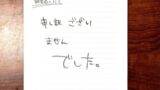 申し訳 ござい
ません
でした。